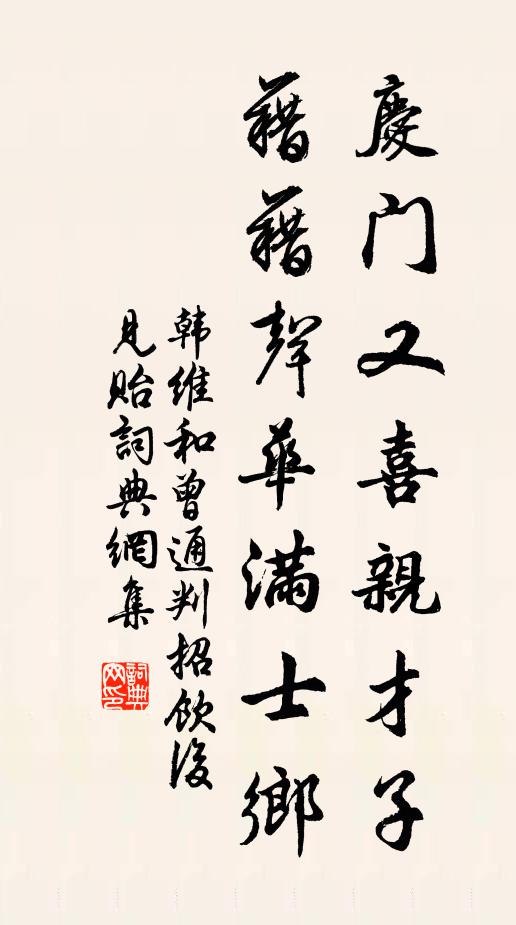 慶門又喜親才子
藉藉聲華滿士鄉
韩維和曾通判招飲後
見貽詞典網集
詞典网印